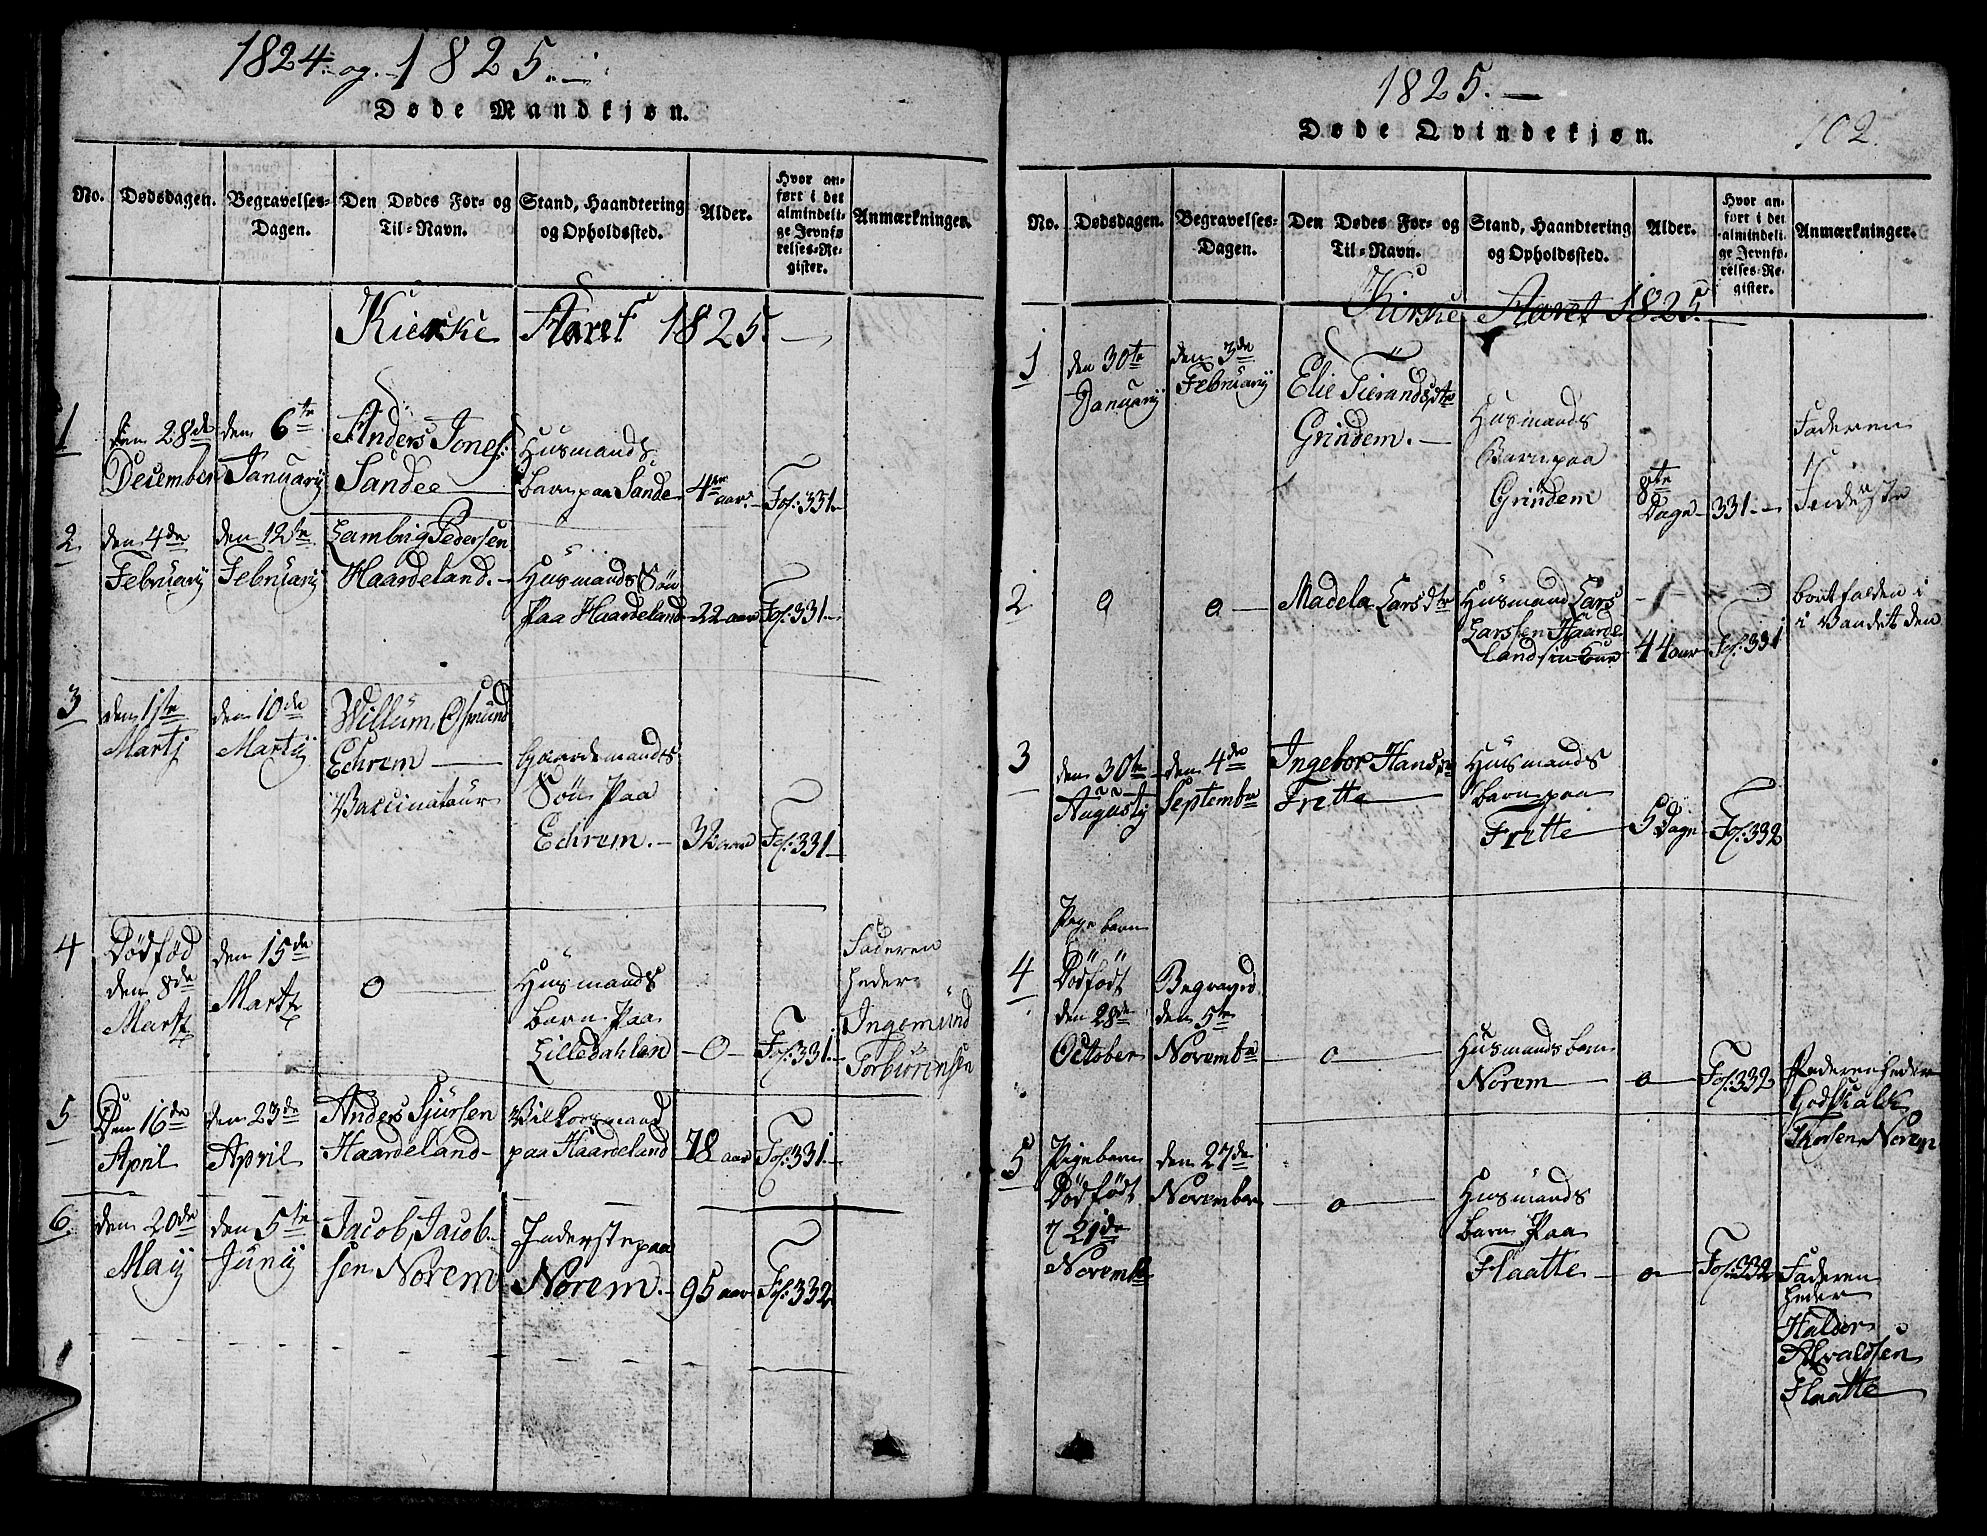 1824. og. 1825.
Døde Mandkjøn.
No.
Dødsdagen.
Begravelses-
Dagen.
Den Dødes For- og
Til-Navn.
Stand, Haandtering
og Opholdssted.
Alder.
Hvor an-
ført i det
almindeli-
ge Jevnfø
relses-Re-
gister.
Anmærkninger.
Kierke Aaret 1825.
1
den 28de
December
den 6te
Januarij
Anders Jones:
Sandee
Husmands
barn paa Sande
4re
aar.
Fol: 331
2
den 4de
Februarij
den 12te
Februarij
Lambrig Pedersen
Haardeland.
Husmands Søn
Paa Haardeland
22 aar
Fol: 331
3
den 1ste
Martj
den 10de
Martij
Willum Osmund
Echrem
Vaccinateur
Gaardemands
Søn Paa
Echrem.
32 aar
Fol: 331
4
Dødfød
den 8de
Martz
den 15de
Martz
0
Husmands
barn Paa
Lilledahlen
0
Fol: 331
Faderen
heder
Ingemund
Torbiørensen
5
Den 16de
April
den 23de
April
Anders Sjursen
Haardeland
Vilkorsmand
paa Haardeland
78 aar
Fol: 331
6
den 20de
Maij
den 5te
Junij
Jacob, Jacob
sen Norem
Inderste paa
Norem.
95 aar
Fol: 332
1825.
102.
Døde Qvindekjøn.
No.
Dødsdagen.
Begravelses-
Dagen.
Den Dødes For- og
Til-Navn.
Stand, Haandtering
og Opholdssted.
Alder.
Hvor an-
ført i det
almindeli-
ge Jevnfø-
relses-Re-
gister.
Anmærkninger.
Kirke Aaret 1825.
1
den 30te
Januarij
den 3de
Februarij
Elie Tierandsdtr
Grindem.
Husmands
Barn paa
Grindem
8te
Dage
331
Faderen
2
0
0
Madela Larsdtr
Husmand Lars
Larssen Haarde
land sin
44 aar
Fol: 331
bortfalden i
i Vandet den
3
den 30te
Augustij
den 4de
Septembr
Ingebor Hansdtr
Frette
Husmands
barn paa
Frette
5 Dage
Fol: 332
4
Pige barn
Dødfødt
den 28de
October
Begraved
den 5te
Novembr
0
Husmands barn
Norem
0
Fol: 332
Faderen heder
Godskalk
Norem
5
Pigebarn
Dødfødt
21de
Novembr
den 27de
November
0
Husmands
barn Paa
Flaatte
0
Fol: 332
Faderen
heder
Haldor
Flaatte